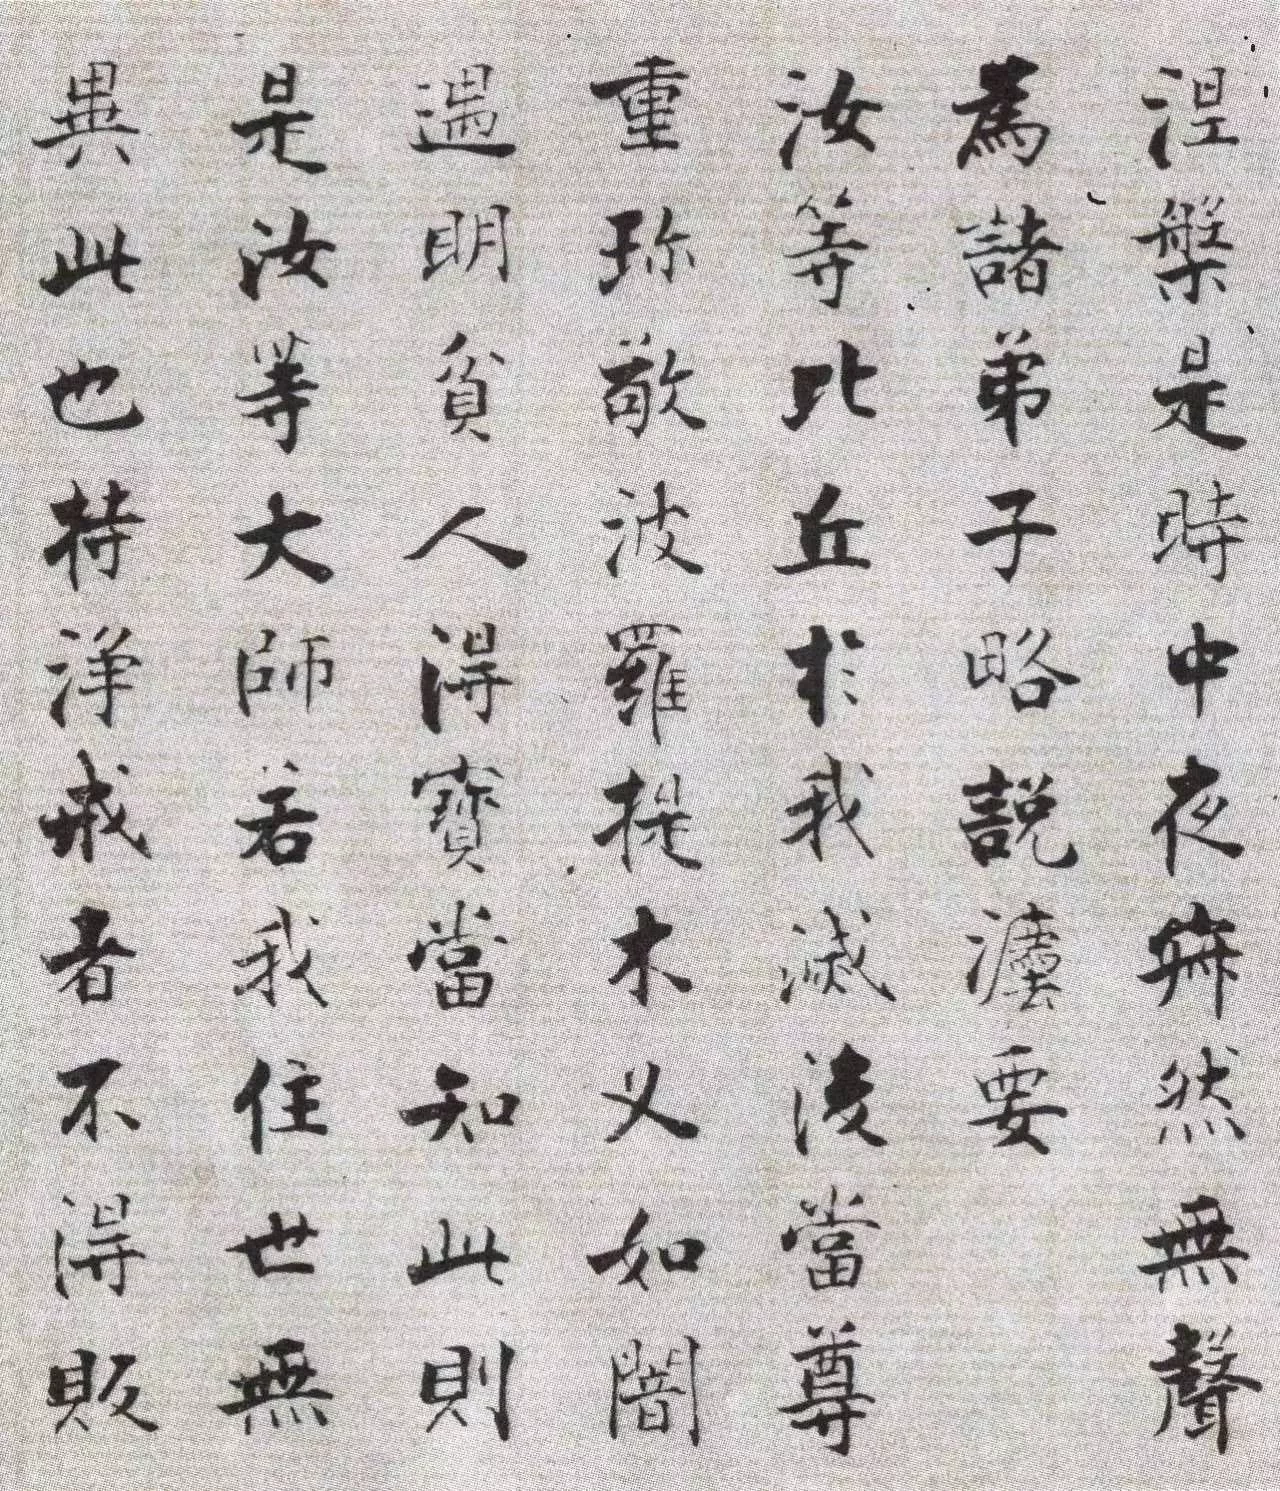 涅槃是時中夜寂然無聲
為諸弟子略說法要
汝等比丘於我滅後當尊
重珎敬波羅提木叉如闇
遇明貧人得寶當知此則
是汝等大師若我住世無
異此也持淨戒者不得販